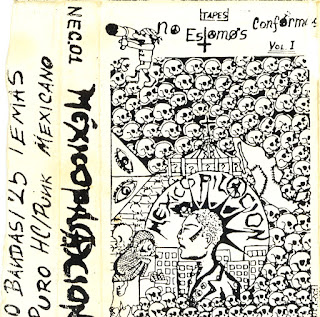 TAPES
no Estamos Conformes
VOL. I
MEXICOPILACION
NEC.01
MéXICOPILACION
0 BANDAS/25 TEMAS
PURO HC/PUNK MEXICANO